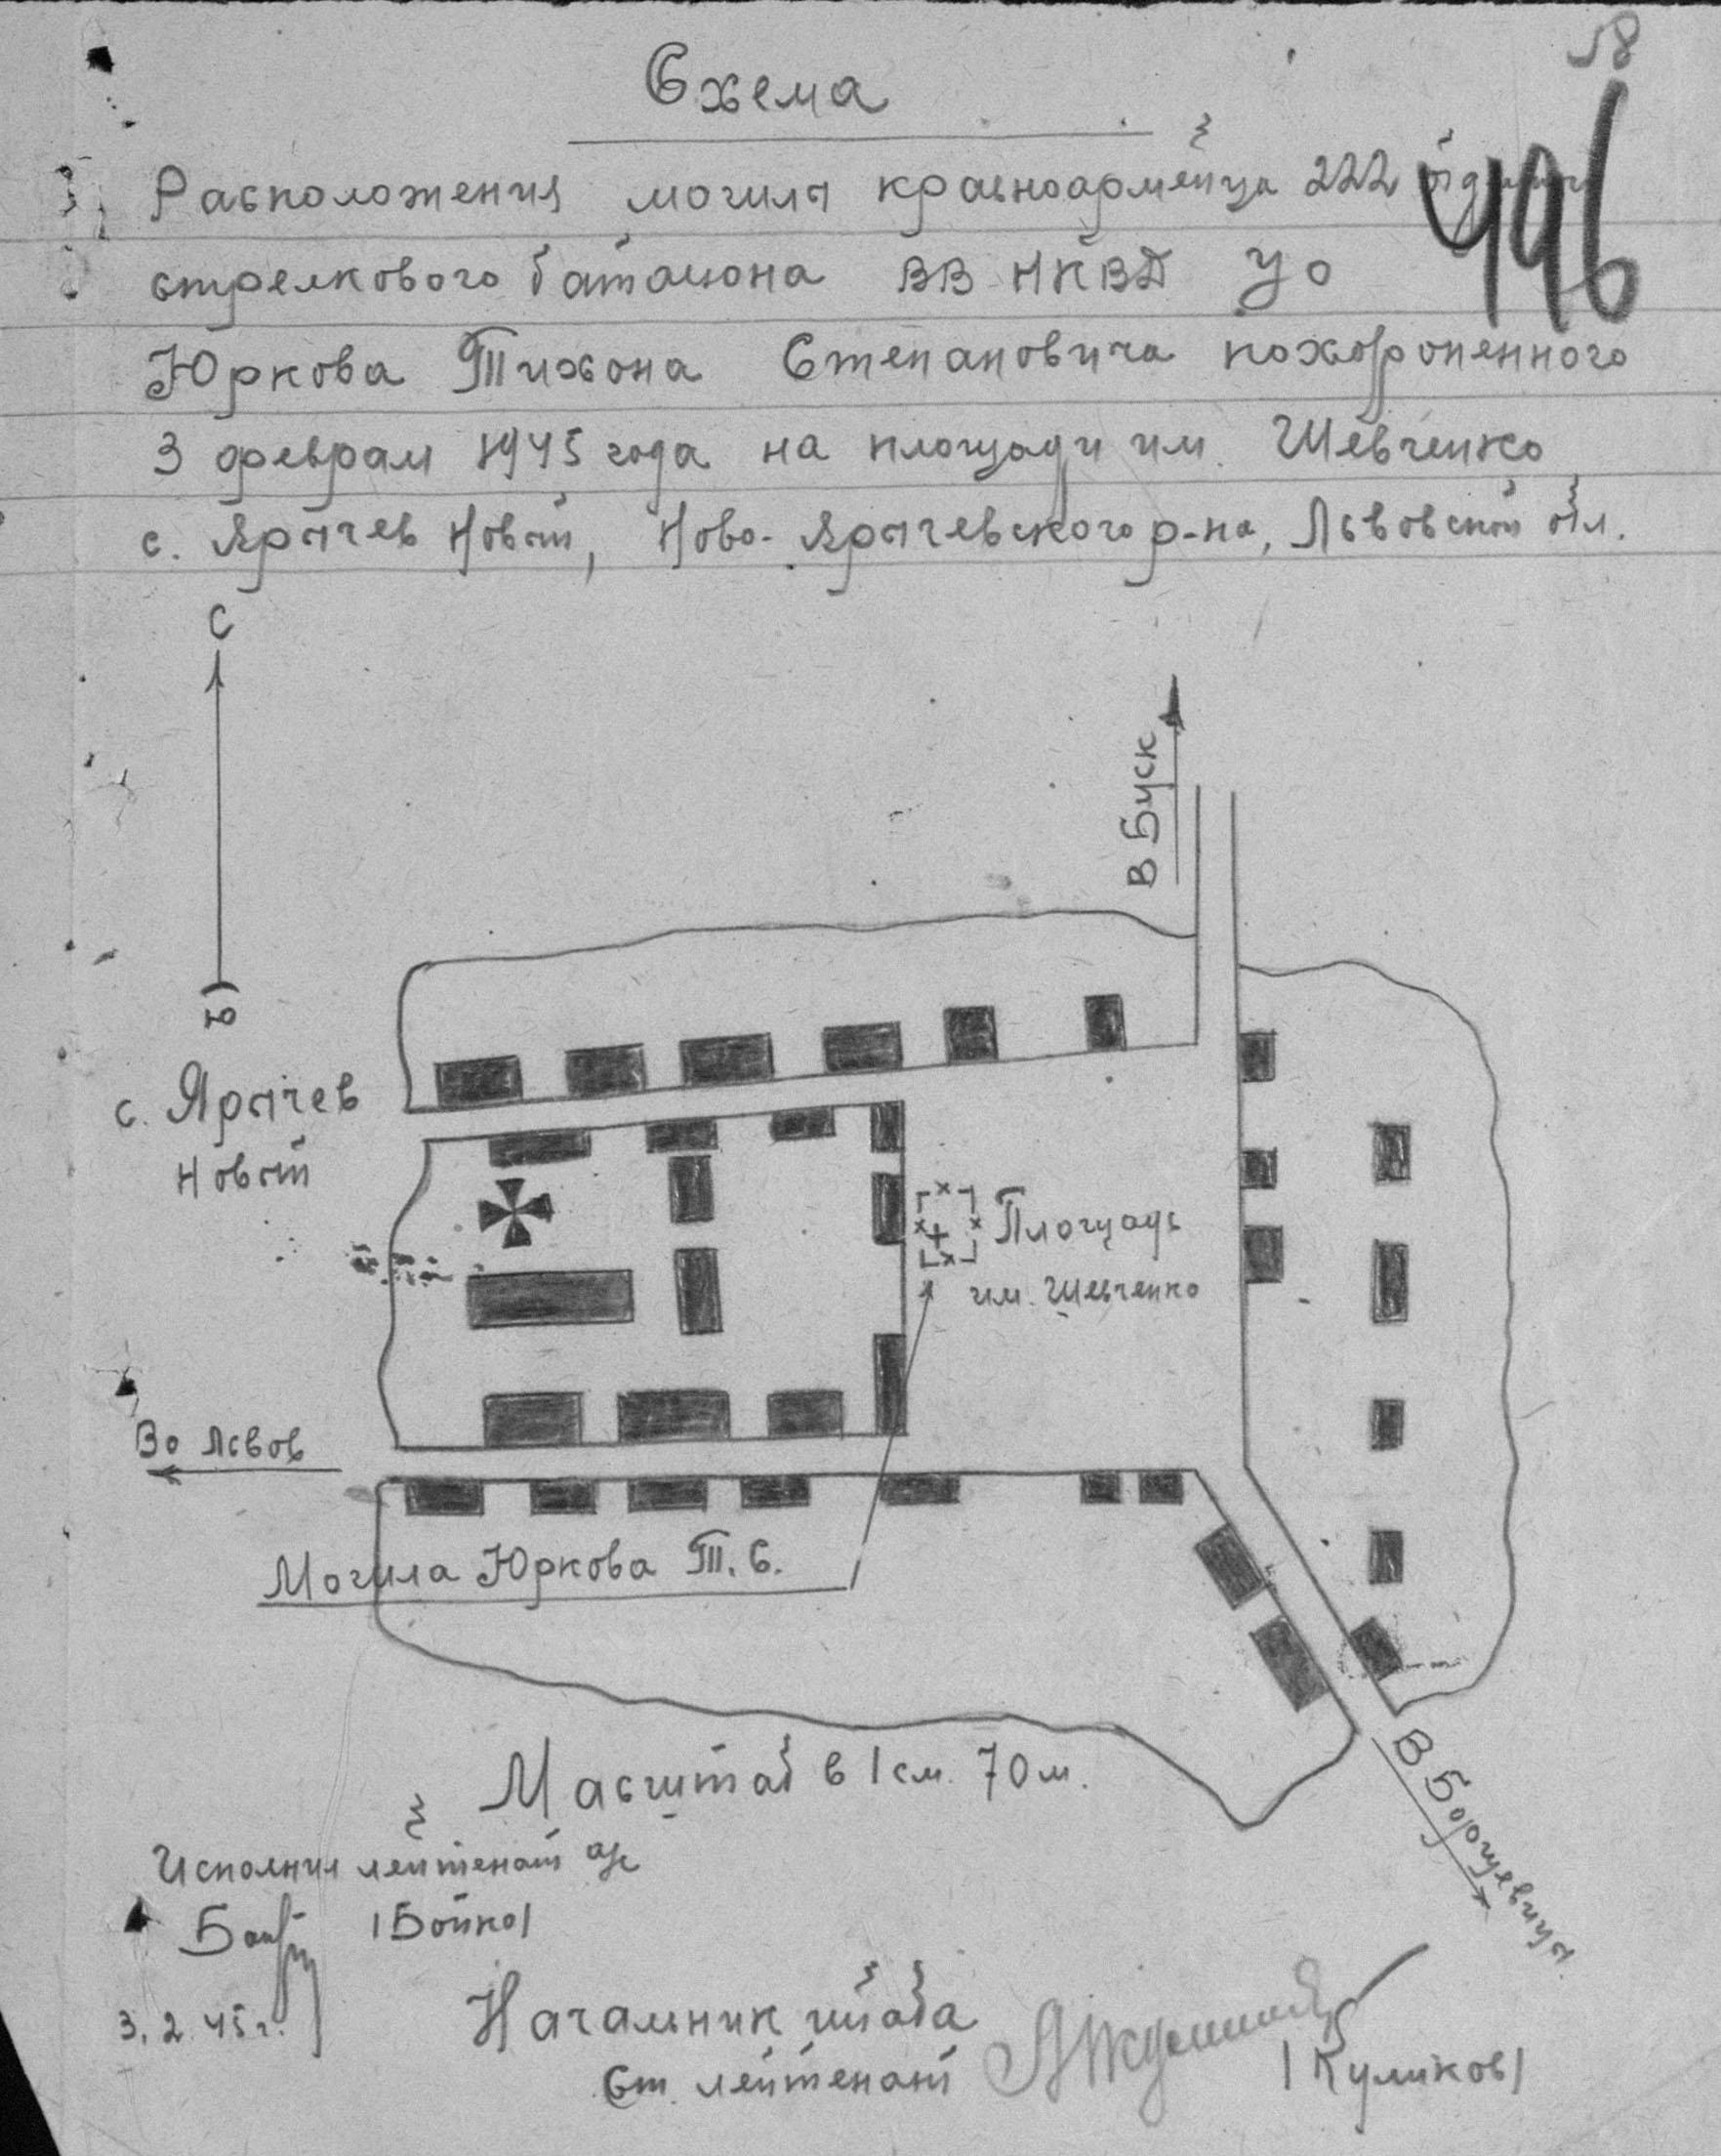 18
496
Схема
Расположения могилы красноармейца 222 отдельн
стрелкового батальона ВВ НКВД УО
Юркова Тихона Степановича похороненного
3 февраля 1945 года на площади им. Шевченко
с. Ярычев Новый, Ново-Ярычевского р-на, Львовской обл.
С
Ю
В Буск
с. Ярычев
Новый
Площадь
им. Шевченко
Во Львов
Могила Юркова Т. С.
Масштаб в 1 см. 70 м.
В Борщевицы
Исполнил лейтенант
/Бойко/
3.2.45г.
Начальник штаба
Ст. лейтенант
/Куликов/